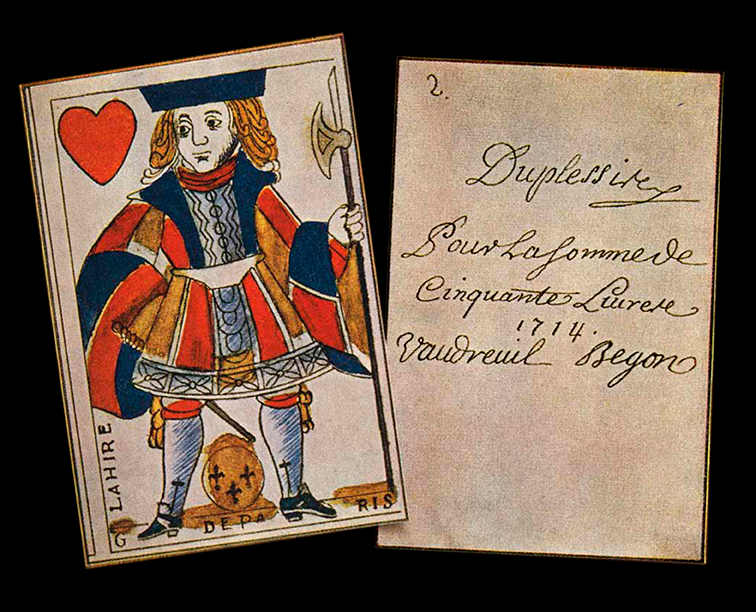 LAHIRE
G DE PA RIS
2.
Duplessis
Pour La Somme de
Cinquante Livres
1714.
Vaudreuil Begon